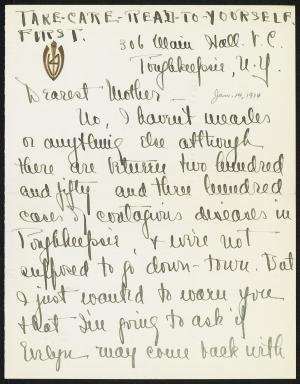 TAKE-CARE.-READ-TO-YOURSELF.
FIRST.
306 Main Hall. V.C.
Poughkeepsie, N.Y.
Jan. 14, 1914
Dearest Mother
No, I haven't measles
or anything else although
there are between two hundred
and fifty and three hundred
cases of contagious diseases in
Poughkeepsie, & we're not
supposed to go down-town. But
I just wanted to warn you
that I'm going to ask if
Evelyn may come back with